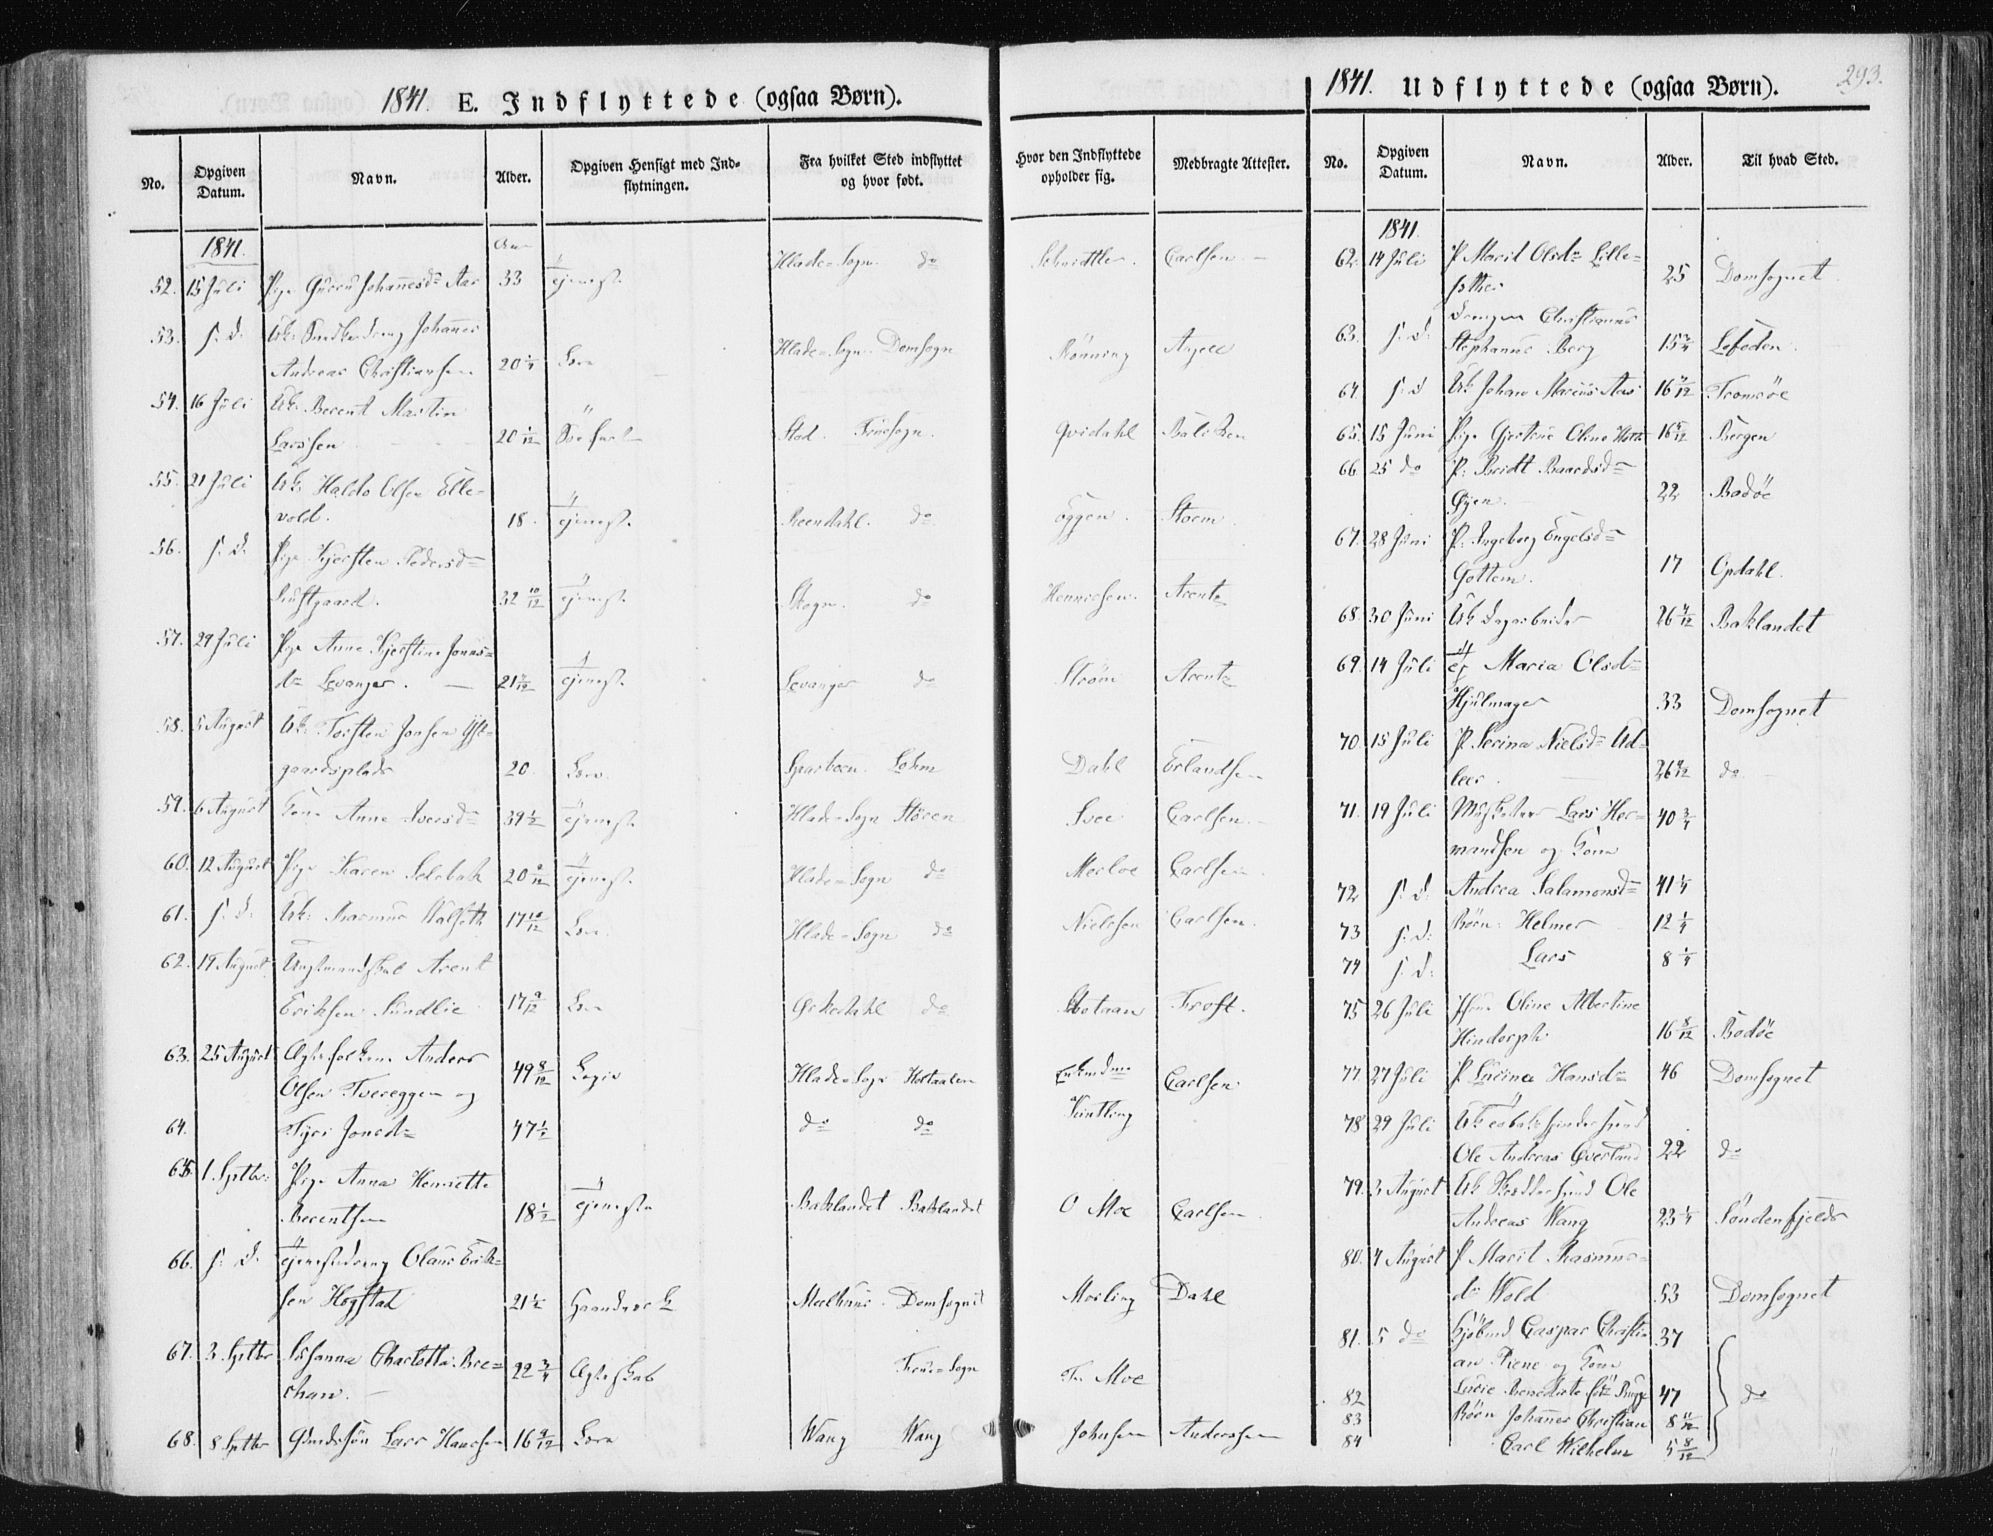 1841. E. Indflyttede (ogsaa Børn).
No. Opgiven Datum. Navn. Alder. Opgiven Hensigt med Indflytningen. Fra hvilket Sted indflyttet og hvor født. Hvor den Indflyttede opholder sig. Medbragte Attester.
1841.
52. 15 Juli Pige Guru Johannesd Aas 33 Tjeneste Hlade-Sogn do Carlsen
53. s. d. Johannes
Andreas Christiansen 20 1/4 Lære Hlade-Sogn Domsogn Rönning Angell
54. 16 Juli Uk. Berent Martin
Larssen 20 1/12 Stod Fruesogn Qvidahl
55. 21 Juli Uk. Haldo Olsen Elle-
vold. 18. Tjenest. do Eggen. Storm
56. s. d. Pige Kjersten Pedersd
32 10/12 Tjenest. Skogn. do Arentz
57. 29 Juli Pige Anne Kjerstine Jonas-
dr Levanger. 21 Tjenest. Levanger do Ström Arentz
58. 5 August Uk. Torsten Jonsen
gaardsplads 20. Lære Sparboen. Dahl Erlandsen
59. 6 August Kone Anne Iversd 39 1/2 Tjenest Hlade-Sogn Stören Svee Carlsen
60. 12 August Pige Karen Selebak 20 Tjenest. Hlade-Sogn do Carlsen
61. s. d. Uk. Rasmus 17 10/12 Lære. Hlade-Sogn do Nielssen Carlsen.
62. 19 August Arent
Eriksen Sundlie 17 9/12 Lære Orkedahl do Trost.
63. 25 August Ægtefolkene Anders
Olsen Tvereggen og 49 8/12 Logie Hlade-Sogn Holtaalen Carlsen
64. Jonsd 47 1/2 do do
65 1. Septbr. Pige Anna Henriette
Berentsen 18 1/2 Tjeneste Baklandet Baklandet O Moe Carlsen
66. s. d. Tjenestedreng Olaus Erik-
sen Hogstad 21 1/2 Haandverk Meelhuus. Domsognet Morling Dahl
67. 3 Septbr Susanna Charlotta Bre-
chan. 22 3/4 Ægteskab Frue-Sogn Fr. Moe
68. 8 Septbr Lars Hansen 16 9/12 Lære Wang Wang Johnsen Anderssen
1841. Udflyttede (ogsaa Børn). 293.
No. Opgiven Datum. Navn. Alder. Til hvad Sted.
1841.
62. 14 Juli P. Marit Olsdr Lille-
25 Domsognet
63. s. d. drengen Christianus
Stephanus Berg 15 3/4 Lofoden
64. s. d Uk Johan Marius Aas 16 Tromsöe
65. 15 Juni Pige Gjertine Oline 16 Bergen
66 25 do P. Beridt Baardsd
Øyen 22 Bodöe
67. 28 Juni P. Ingeborg Engelsd
Gottem. 17 Opdahl.
68. 30 Juni Uk Dagarbeider 26 Baklandet
69. 14 Juli Maria Olsd
Hjulmager 33 Domsognet
70. 15 Juli P. Serina Nielsd Ud-
leer. 26 do
71. 19 Juli Musketeer Lars Her-
mandsen og Kone 40 3/4
72 s. d. Andrea Salamonsd 41 1/4
73 s. d: Børn: Helmer 12 1/4
74 s. d: Lars 8 1/4
75 26 Juli Oline Albertine
Hindorph 16 8/12 Bodöe
77. 27 Juli P Lucina Hansd 46 Domsognet
78 29 Juli Uk Tobakspindersvend
Ole Andreas Qverland 22 do
79. 3 August Uk Ole
Andreas Wang 23 1/4 Søndenfjelds
80. 4 August P Marit Rasmus-
dr Wold 53 Domsognet
81. 5 do Kjöbmd Caspar Christi-
an Piene og Kone 37
82 Lucie Benedicte 47 do
83 Børn Johannes Christian 8 11/12
84 Carl Wilhelm 5 8/12